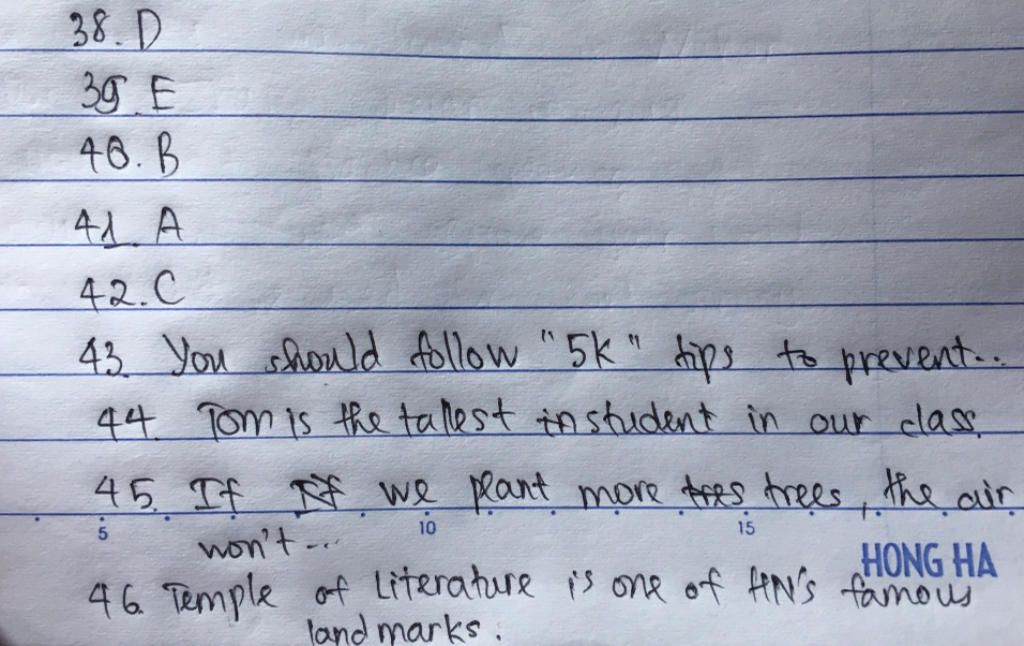 38. D
39. E
40. B
41. A
42. C
43. You should follow "5k" tips to prevent...
44. Tom is the tallest in student in our class.
45. If If we plant more tres trees, the air
5 10 15
won't...
HONG HA
46. Temple of Literature is one of HN's famous
landmarks.